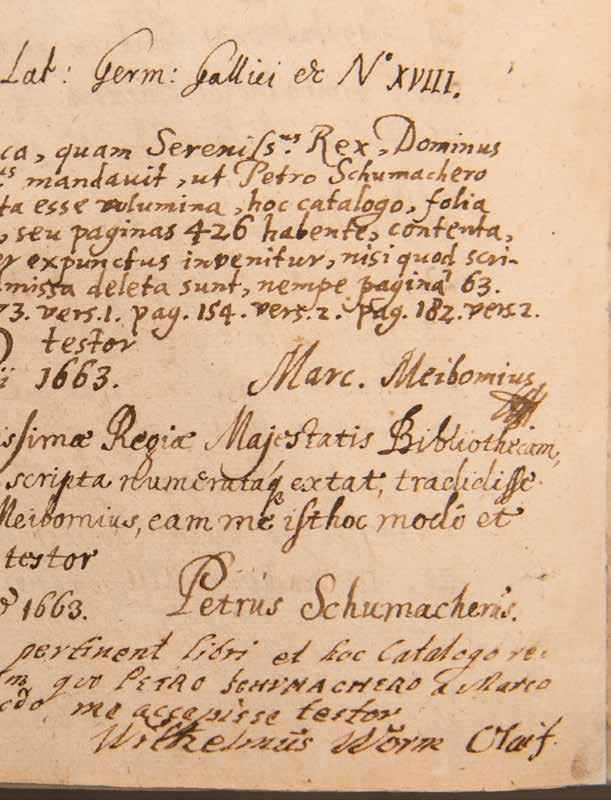 Lat: Germ: Gallici etc N° XVIII.
ca, quam Sereniss.us Rex, Dominus
us mandavit, ut Petro Schumachero
ta esse volumina, hoc catalogo, folia
, seu paginas 426 habente, contenta,
er expunctus invenitur, nisi quod scri-
missa deleta sunt, nempe pagina 63.
73. vers. 1. pag. 154. vers. 2. pag. 182. vers. 2.
testor
ii 1663. Marc. Meibomius
issimæ Regiæ Majestatis Bibliothecam,
scripta numerataq; extat, tradidisse
Meibomius, eam me isthoc modo et
testor
1663. Petrus Schumacherus.
pertinent libri et hoc Catalogo re-
quo PETRO SCHUMACHERO a Marco
me accepisse testor
Wilhelmus Worm Olai f.